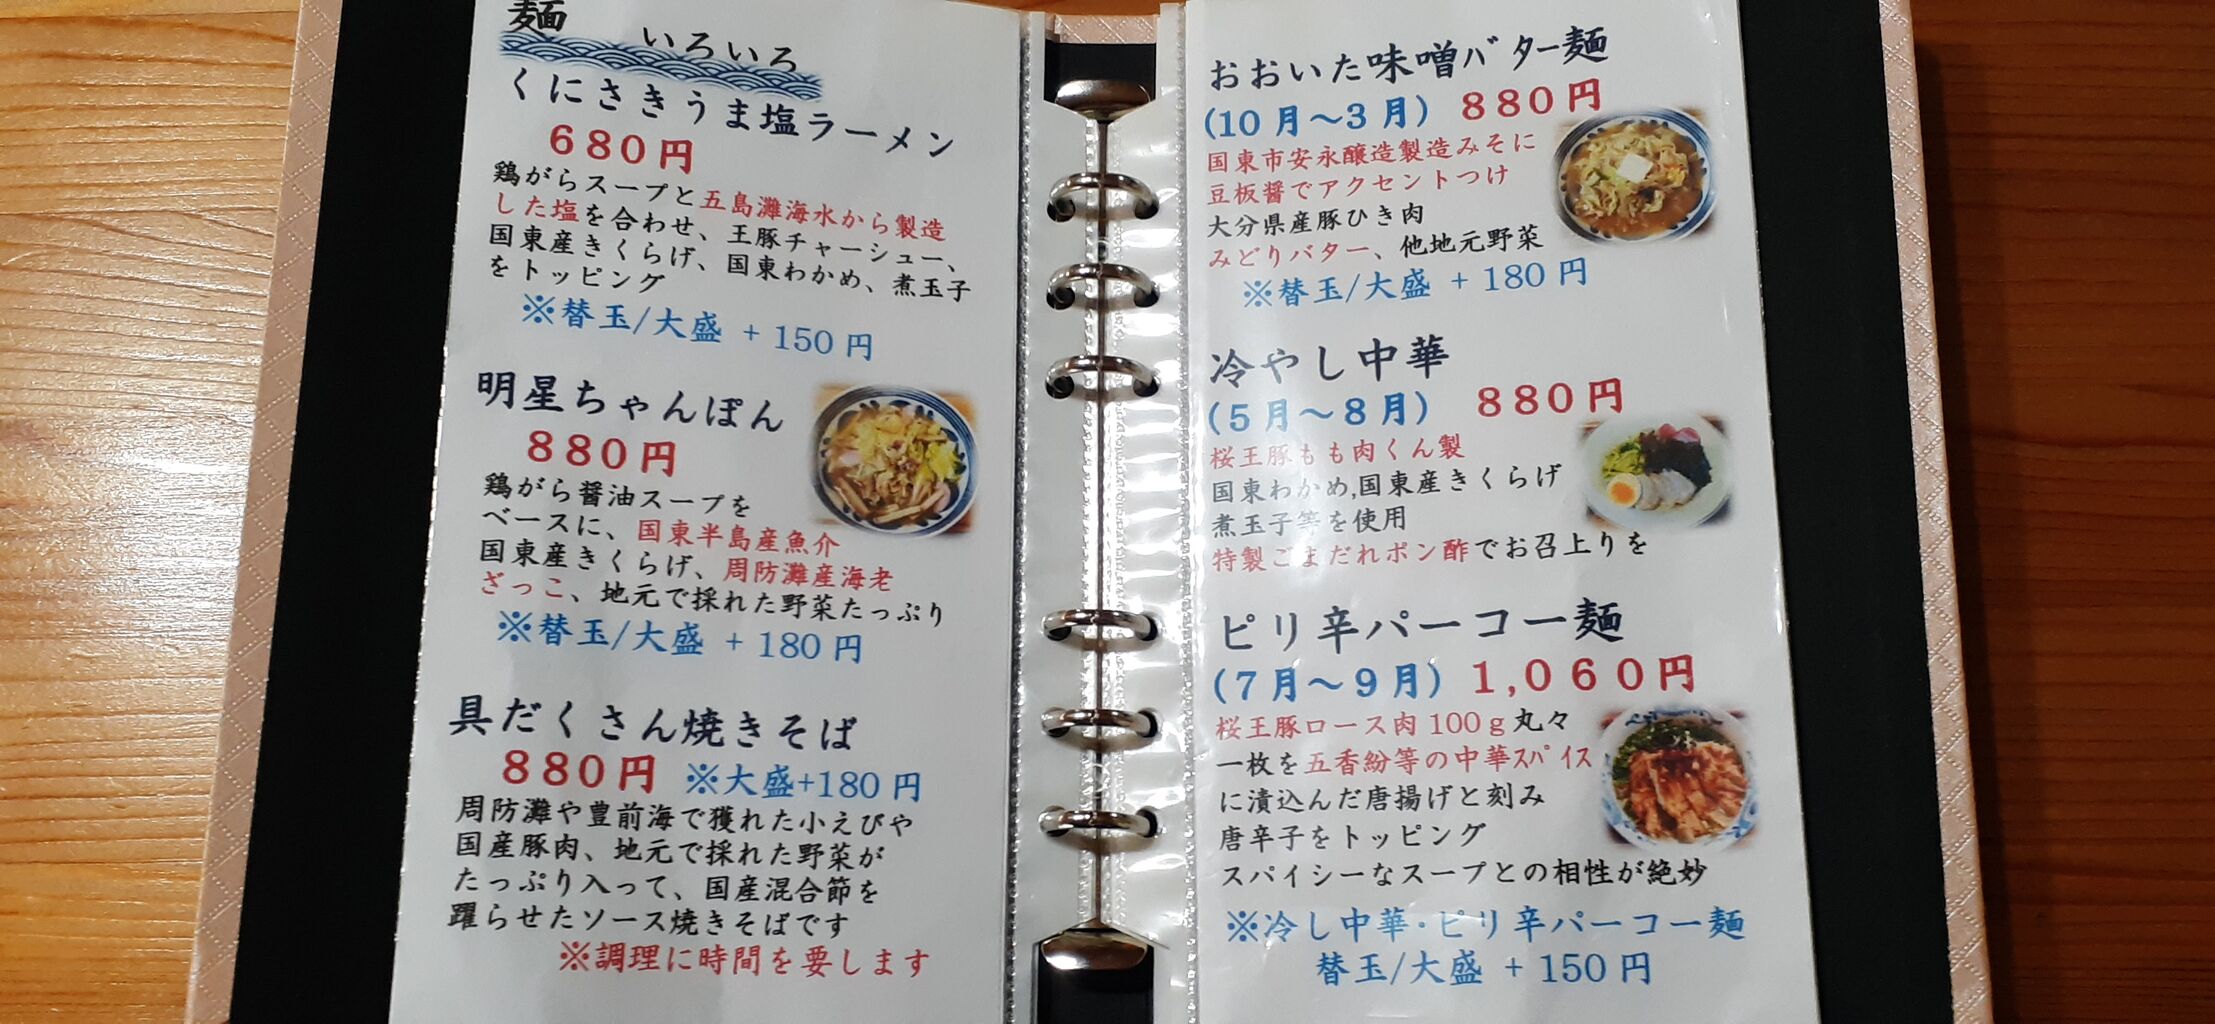 麺
いろいろ
くにさきうま塩ラーメン
680円
鶏がらスープと五島灘海水から製造
した塩を合わせ、王豚チャーシュー、
国東産きくらげ、国東わかめ、煮玉子
をトッピング
※替玉/大盛 + 150 円
明星ちゃんぽん
880円
鶏がら醤油スープを
ベースに、国東半島産魚介
国東産きくらげ、周防灘産海老
ざっこ、地元で採れた野菜たっぷり
※替玉/大盛 + 180 円
具だくさん焼きそば
880円 ※大盛+180 円
周防灘や豊前海で獲れた小えびや
国産豚肉、地元で採れた野菜が
たっぷり入って、国産混合節を
躍らせたソース焼きそばです
※調理に時間を要します
おおいた味噌バター麺
(10 月～3 月) 880円
国東市安永醸造製造みそに
豆板醤でアクセントつけ
大分県産豚ひき肉
みどりバター、他地元野菜
※替玉/大盛 + 180 円
冷やし中華
(5月～8月) 880円
桜王豚もも肉くん製
国東わかめ,国東産きくらげ
煮玉子等を使用
特製ごまだれポン酢でお召上りを
ピリ辛パーコー麺
(7月～9月) 1,060円
桜王豚ロース肉 100ｇ丸々
一枚を五香紛等の中華ｽﾊﾟｲｽ
に漬込んだ唐揚げと刻み
唐辛子をトッピング
スパイシーなスープとの相性が絶妙
※冷し中華・ピリ辛パーコー麺
替玉/大盛 + 150 円